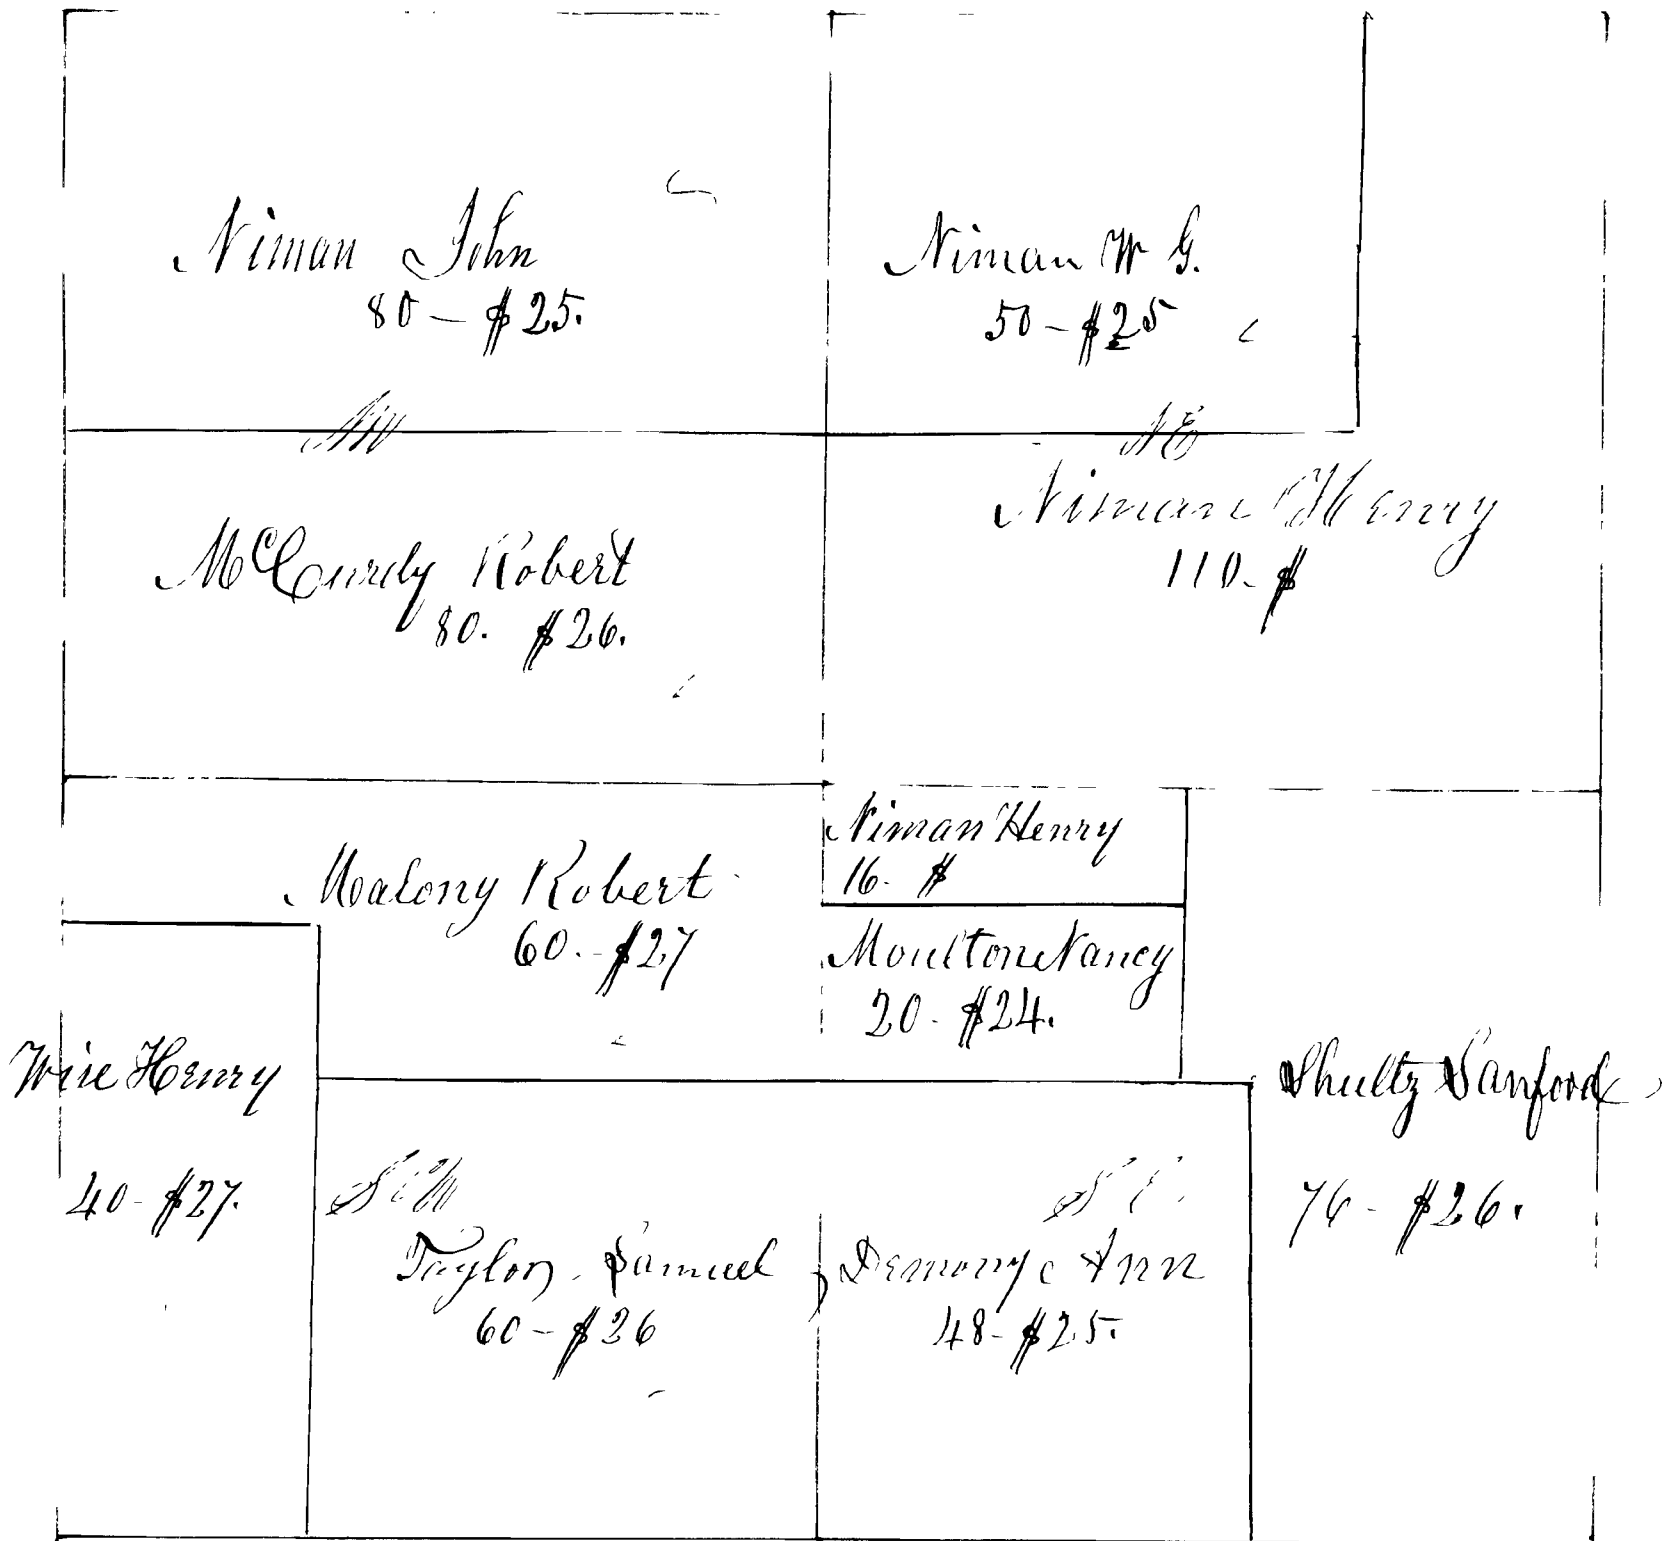 Niman John
80 - $25.
Niman W G.
50 - $25
NW
NE
McCurdy Robert
80. $26.
Niman Henry
110. $
Malony Robert
60. - $27
Niman Henry
16. $
Moulton Nancy
20 - $24.
Wise Henry
40 - $27.
Shultz Sanford
76 - $26.
SW
SE
Taylor Samuel
60 - $26
Ann
48 - $25.